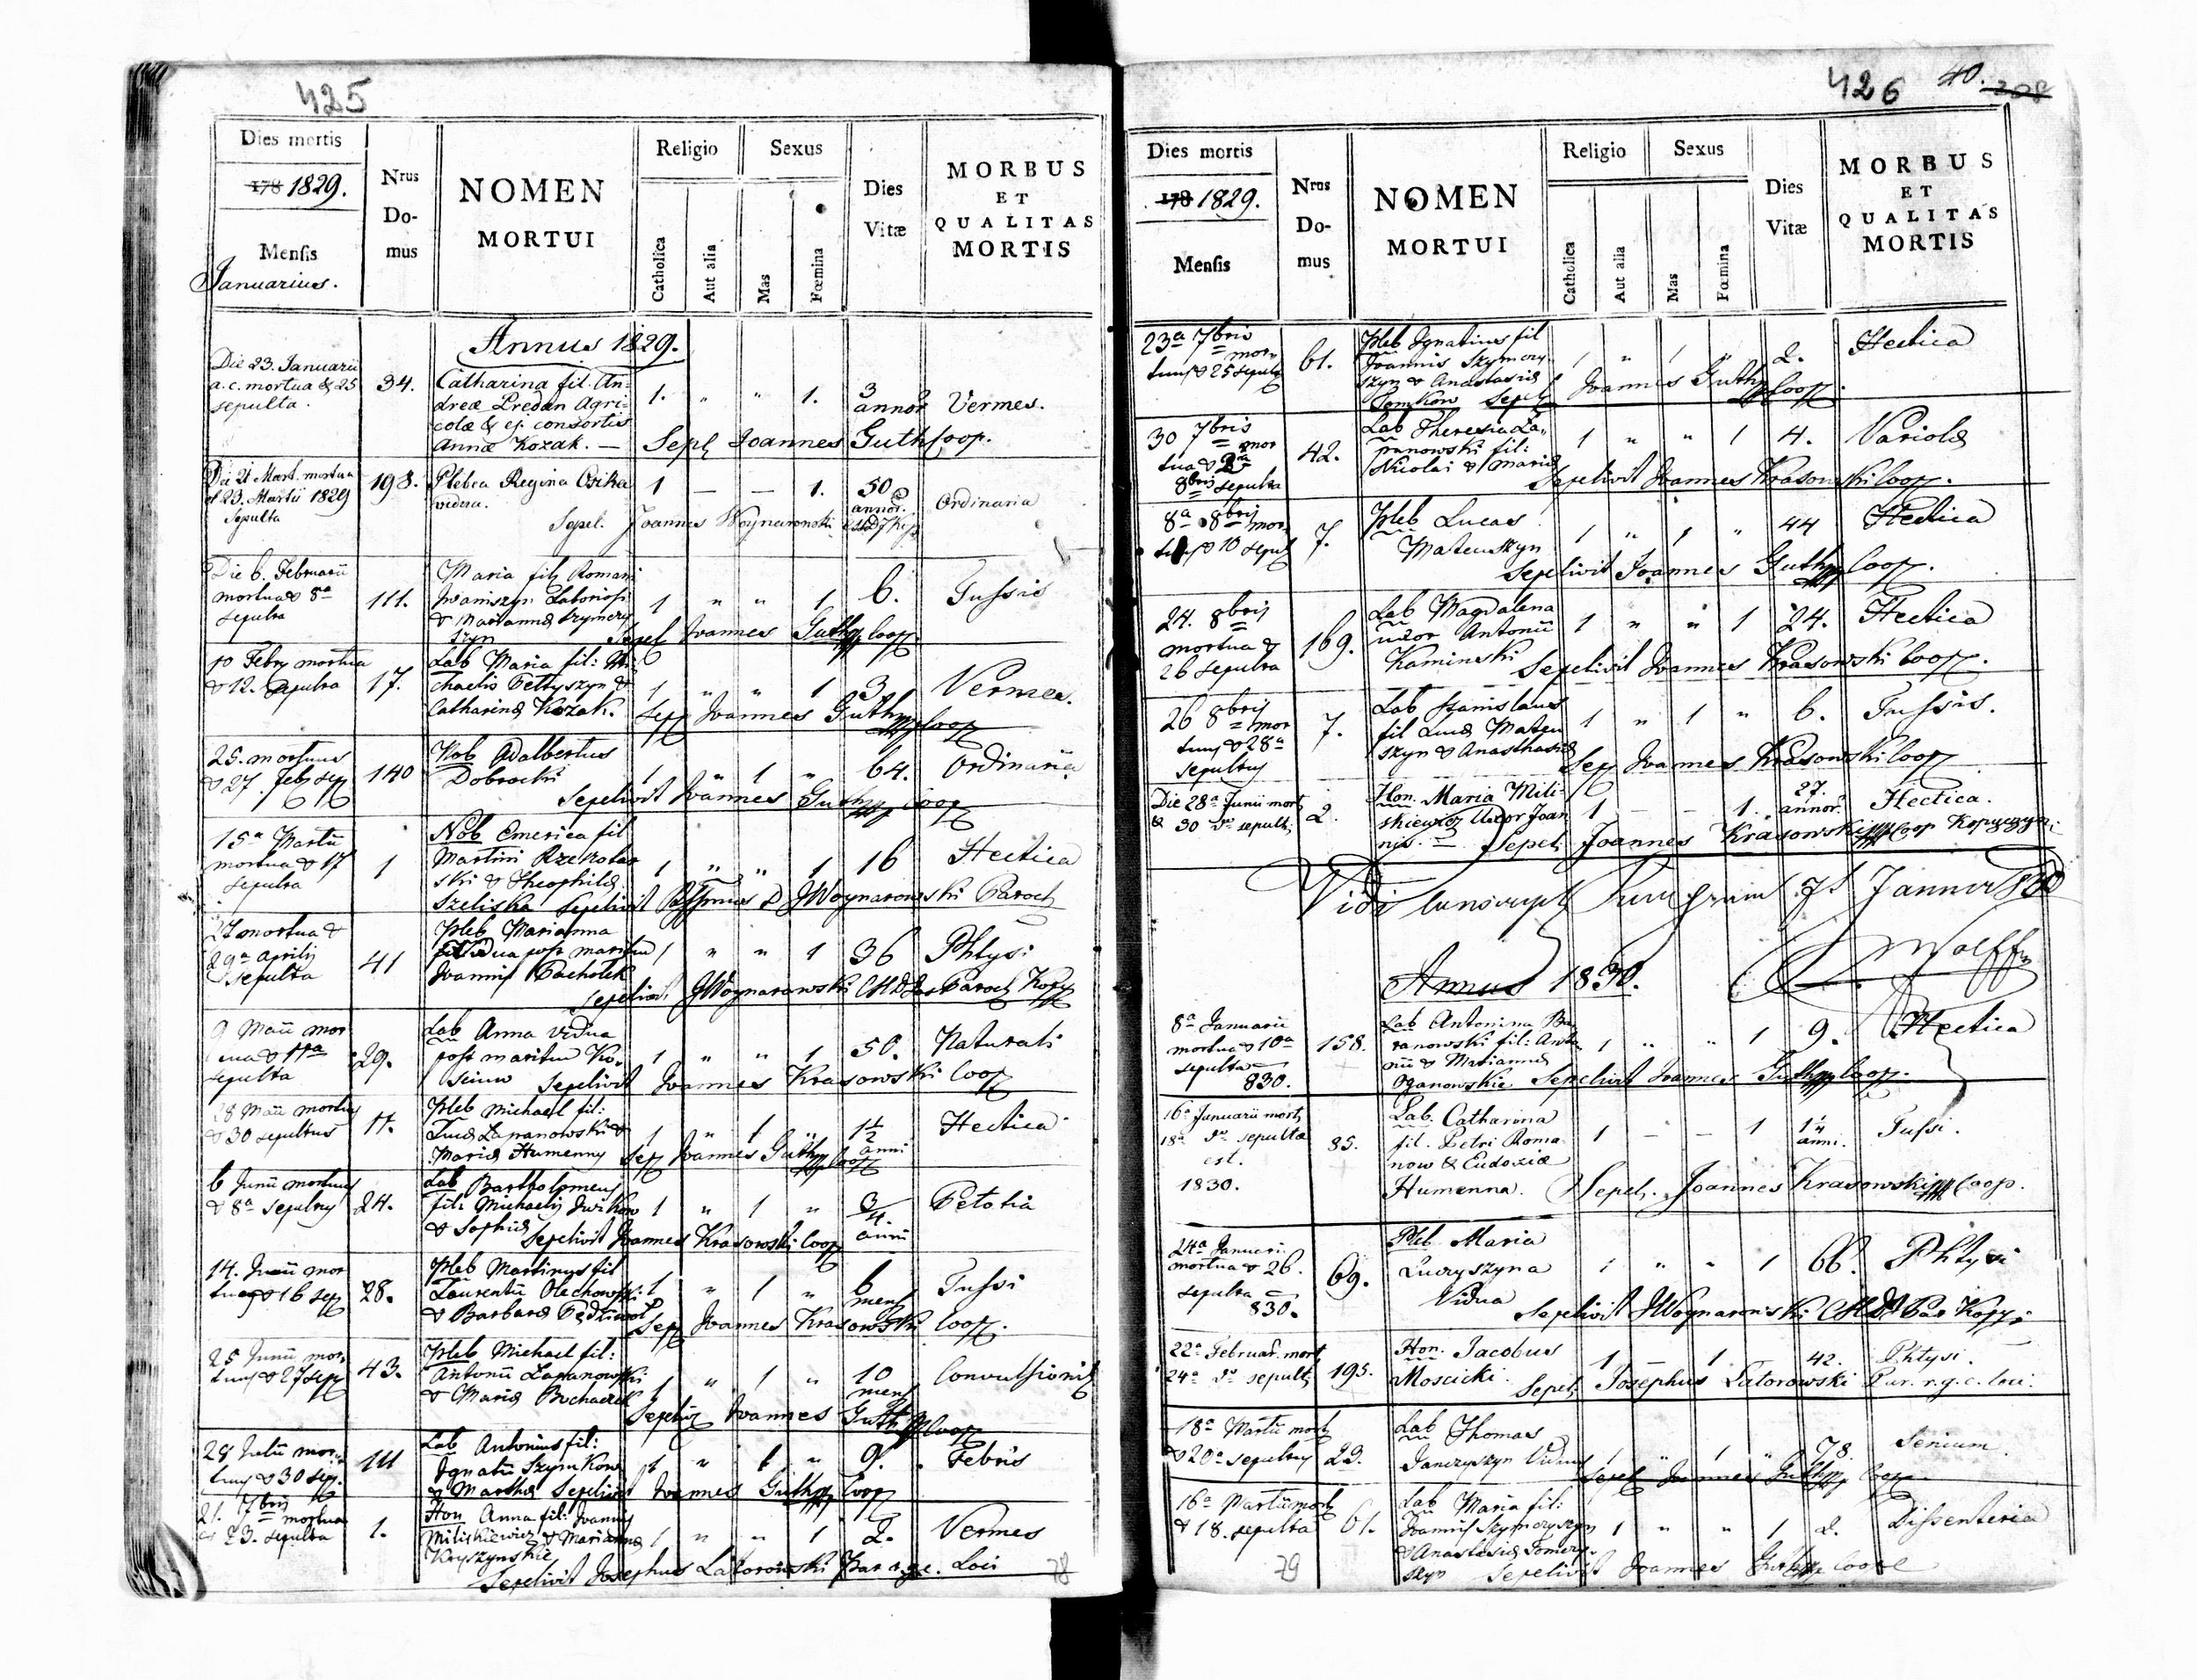 425
Dies mortis
178 1829.
Mensis
Januarius.
Nrus
Do-
mus
NOMEN
MORTUI
Religio
Catholica
Aut alia
Sexus
Mas
Fœmina
Dies
Vitæ
MORBUS
ET
QUALITAS
MORTIS
Annus 1829.
Die 23. Januarii
a. c. mortua & 25
sepulta.
34.
Catharina fil. An-
dreæ Predan Agri-
colæ & ej. consortis
Annæ Kozak. —
1. " " 1.
3
annor
Vermes.
Sepel Joannes Guth Coop.
Die 21 Mart. mortua
et 23. Martii 1829
Sepulta
198.
Plebea Regina Csika
vidua.
1 — — 1.
50
annor.
Ordinaria
Sepel. Joannes Woynarowski
Die 6. Februarii
mortua & 8a
sepulta
111.
Maria fil Romani
Iwaniszyn Laboriosi
& Marianna Szymczy
szyn
1 " " 1
6.
Tussis
Sepel Joannes Guth coop
10 Febr mortua
& 12. sepulta
17.
Lab Maria fil: Mi-
chaelis Pettyszyn &
Catharina Kozak.
1 " " 1
3
Vermes.
Sep Joannes Guth coop
25. mortuus
& 27. Feb sep
140
Nob Adalbertus
Dobrocki
1 " 1 "
64.
Ordinaria
Sepelivit Joannes Guth coop
15a Martii
mortua & 17
sepulta
1
Nob Emerica fil
Martini Rzekotar
ski & Theophila
Szeliska
1 " " 1
16
Hectica
Sepelivit JWoynarowski Paroch
27 mortua &
29a Aprilij
sepulta
41
Pleb Marianna
Vidua post maritum
Joannis Pacholek
1 " " 1
36
Phtysi
Sepelivit JWoynarowski Paroch Kop
9 Maii mor
tua & 11a
sepulta
29.
Lab Anna vidua
post maritum Ko-
seiuw
1 " " 1
50.
Naturalis
Sepelivit Joannes Krasowski Coop
28 Maii mortuus
& 30 sepultus
11.
Pleb Michael fil:
Luca Lapanowski &
Maria Humenny
1 " 1 "
1½
anni
Hectica
Sep Joannes Guth coop
6 Junii mortuus
& 8a sepultus
24.
Lab Bartholomeus
fil: Michaelis Iwikow
& Sophia
1 " 1 "
3/4.
anni
Petotia
Sepelivit Joannes Krasowski coop
14. Junii mor
tuus & 16 sep
28.
Pleb Martinus fil
Laurentii Olechowski
& Barbara
1 " 1 "
6
mens
Tussi
Sep Joannes Krasowski coop.
25 Junii mor-
tuus & 27 sep
43.
Pleb Michael fil:
Antonii Lapanowski
& Maria Bochaczek
1 " 1 "
10
mens
Convulsionis
Sepelivit Joannes Guth coop
28 Julii mor-
tuus & 30 sep.
111
Lab Antonius fil:
Ignatii Szymkow
& Martha
1 " 1 "
9.
Febris
Sepelivit Joannes Guth coop
21. 7bris mortua
et 23. sepulta
1.
Hon Anna fil: Joannis
Miliskiewicz & Marianna
Kryszynskie
1 " " 1
2.
Vermes
Sepelivit Josephus Latorowski Par r.g.c. Loci
78
426 40. 208
Dies mortis
178 1829.
Mensis
Nros
Do-
mus
NOMEN
MORTUI
Religio
Catholica
Aut alia
Sexus
Mas
Fœmina
Dies
Vitæ
MORBUS
ET
QUALITAS
MORTIS
23a 7bris
mor-
tuus & 25 sepult
61.
Pleb Ignatius fil
Joannis Szymczy-
szyn & Anastasia
Tomkow
1 " 1 "
2.
Hectica
Sepel Joannes Guth coop.
30 7bris
mor
tua & 2a
8bris sepulta
42.
Lab Theresia La-
panowski fil:
Nicolai & Maria
1 " " 1
4.
Variola
Sepelivit Joannes Krasowski coop.
8a 8bris mor-
tuus & 10 sepul
7.
Pleb Lucas
Mateuszyn
1 " 1 "
44
Hectica
Sepelivit Joannes Guth Coop.
24. 8bris
mortua &
26 sepulta
169.
Lab Magdalena
uxor Antonii
Kaminski
1 " " 1
24.
Hectica
Sepelivit Joannes Krasowski Coop.
26 8bris
mor
tuus & 28a
sepultus
7.
Lab Stanislaus
fil Luca Mateu
szyn & Anasthasia
1 " 1 "
6.
Tussis.
Sep Joannes Krasowski coop
Die 28a Junii mort
& 30 sepult
2.
Hon. Maria Mili-
skiewicz Uxor Joan
nis. —
1 — — 1.
27.
annor.
Hectica.
Sepel. Joannes Krasowski Coop
Vidi
Janner 830
Wolff
Annus 1830.
8a Januarii
mortua & 10a
sepulta
830.
158.
Lab Antonina Ba-
ranowski fil: Anto-
nii & Marianna
Oganowskie.
1 " " 1
9.
Hectica
Sepelivit Joannes Guth Coop.
16a Januarii mort
18a sepulta
est.
1830.
85.
Lab. Catharina
fil. Petri Roma
now & Eudoxiæ
Humenna.
1 — — 1
anni.
Tussi.
Sepel. Joannes Krasowski Coop.
24a Januari
mortua & 26.
sepulta
830.
69.
Pleb Maria
Lucyszyna
Vidua
1 " " 1
66.
Phtysi
Sepelivit JWoynarowski Par Kop
22a Februar. mort
24a sepult
195.
Hon. Jacobus
Moscicki.
1 — 1
42.
Phtysi.
Sepel Josephus Latorowski Par. r.g.c. loci.
18a Martii mort
& 20a sepultus
23.
Lab Thomas
Janczyszyn Viduus
1 " 1 "
78.
Senium.
Sepel Joannes Guth Coop
16a Martii mort
& 18. sepulta
61.
Lab Maria fil:
Joannis Szymczyszyn
& Anastasia Tomczy-
szyn
1 " " 1
2.
Dissenteria
Sepelivit Joannes Guth coope
79